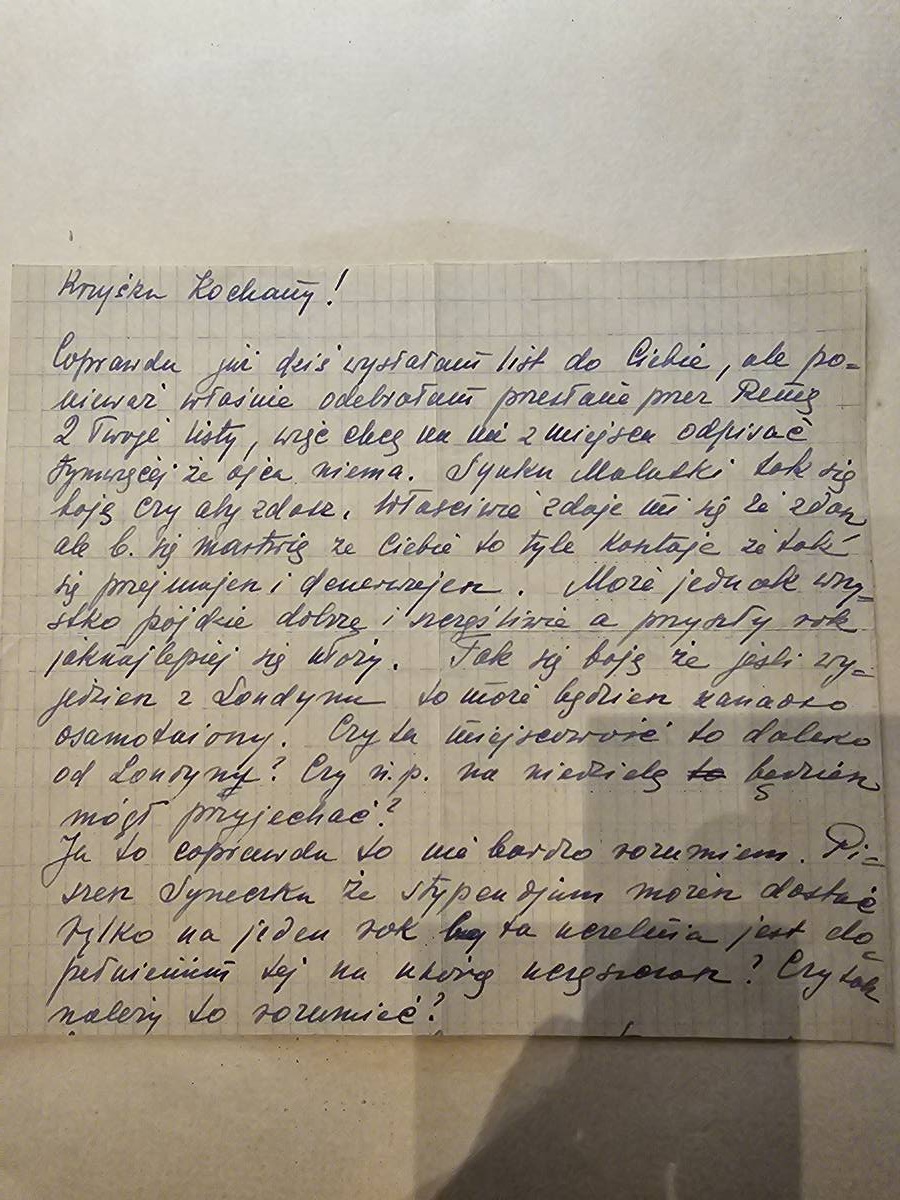 Krzyśku Kochany!
Coprawda już dziś wysłałam list do Ciebie, ale po=
nieważ właśnie odebrałam przesłane przez Renię
2 Twoje listy, więc chcę na nie z miejsca odpisać
tymwięcej że ojca niema. Synku Malutki tak się
boję czy aby zdasz. Właściwie zdaje mi się że zdasz
ale b. się martwię że Ciebie to tyle kosztuje że tak
się przejmujesz i denerwujesz. Może jednak wszy=
stko pójdzie dobrze i szczęśliwie a przyszły rok
jaknajlepiej się ułoży. Tak się boję że jeśli wy=
jedziesz z Londynu to może będziesz zanadto
osamotniony. Czy ta miejscowość to daleko
od Londynu? Czy n.p. na niedzielę będziesz
mógł przyjechać?
Ja to coprawda to nie bardzo rozumiem. Pi=
szesz Syneczku że stypendjum możesz dostać
tylko na jeden rok ta uczelnia jest do=
pełnieniem tej na którą uczęszczasz? Czy tak
należy to rozumieć?